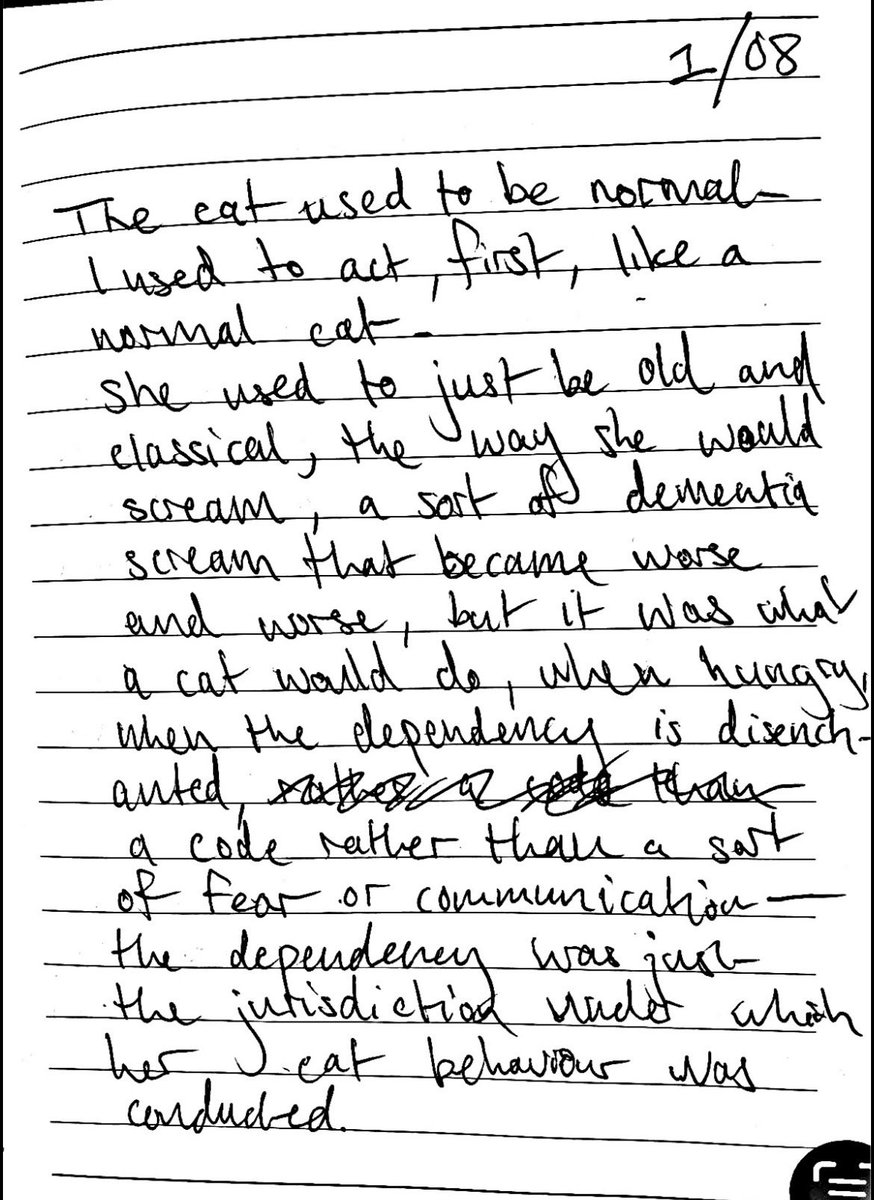 1/08
The cat used to be normal-
I used to act, first, like a
normal cat-
She used to just be old and
classical, the way she would
scream, a sort of dementia
scream that became worse
and worse, but it was what
a cat would do, when hungry,
when the dependency is disench-
anted,
a code rather than a sort
of fear or communication—
the dependency was just
the jurisdiction under which
her cat behaviour was
conducted.